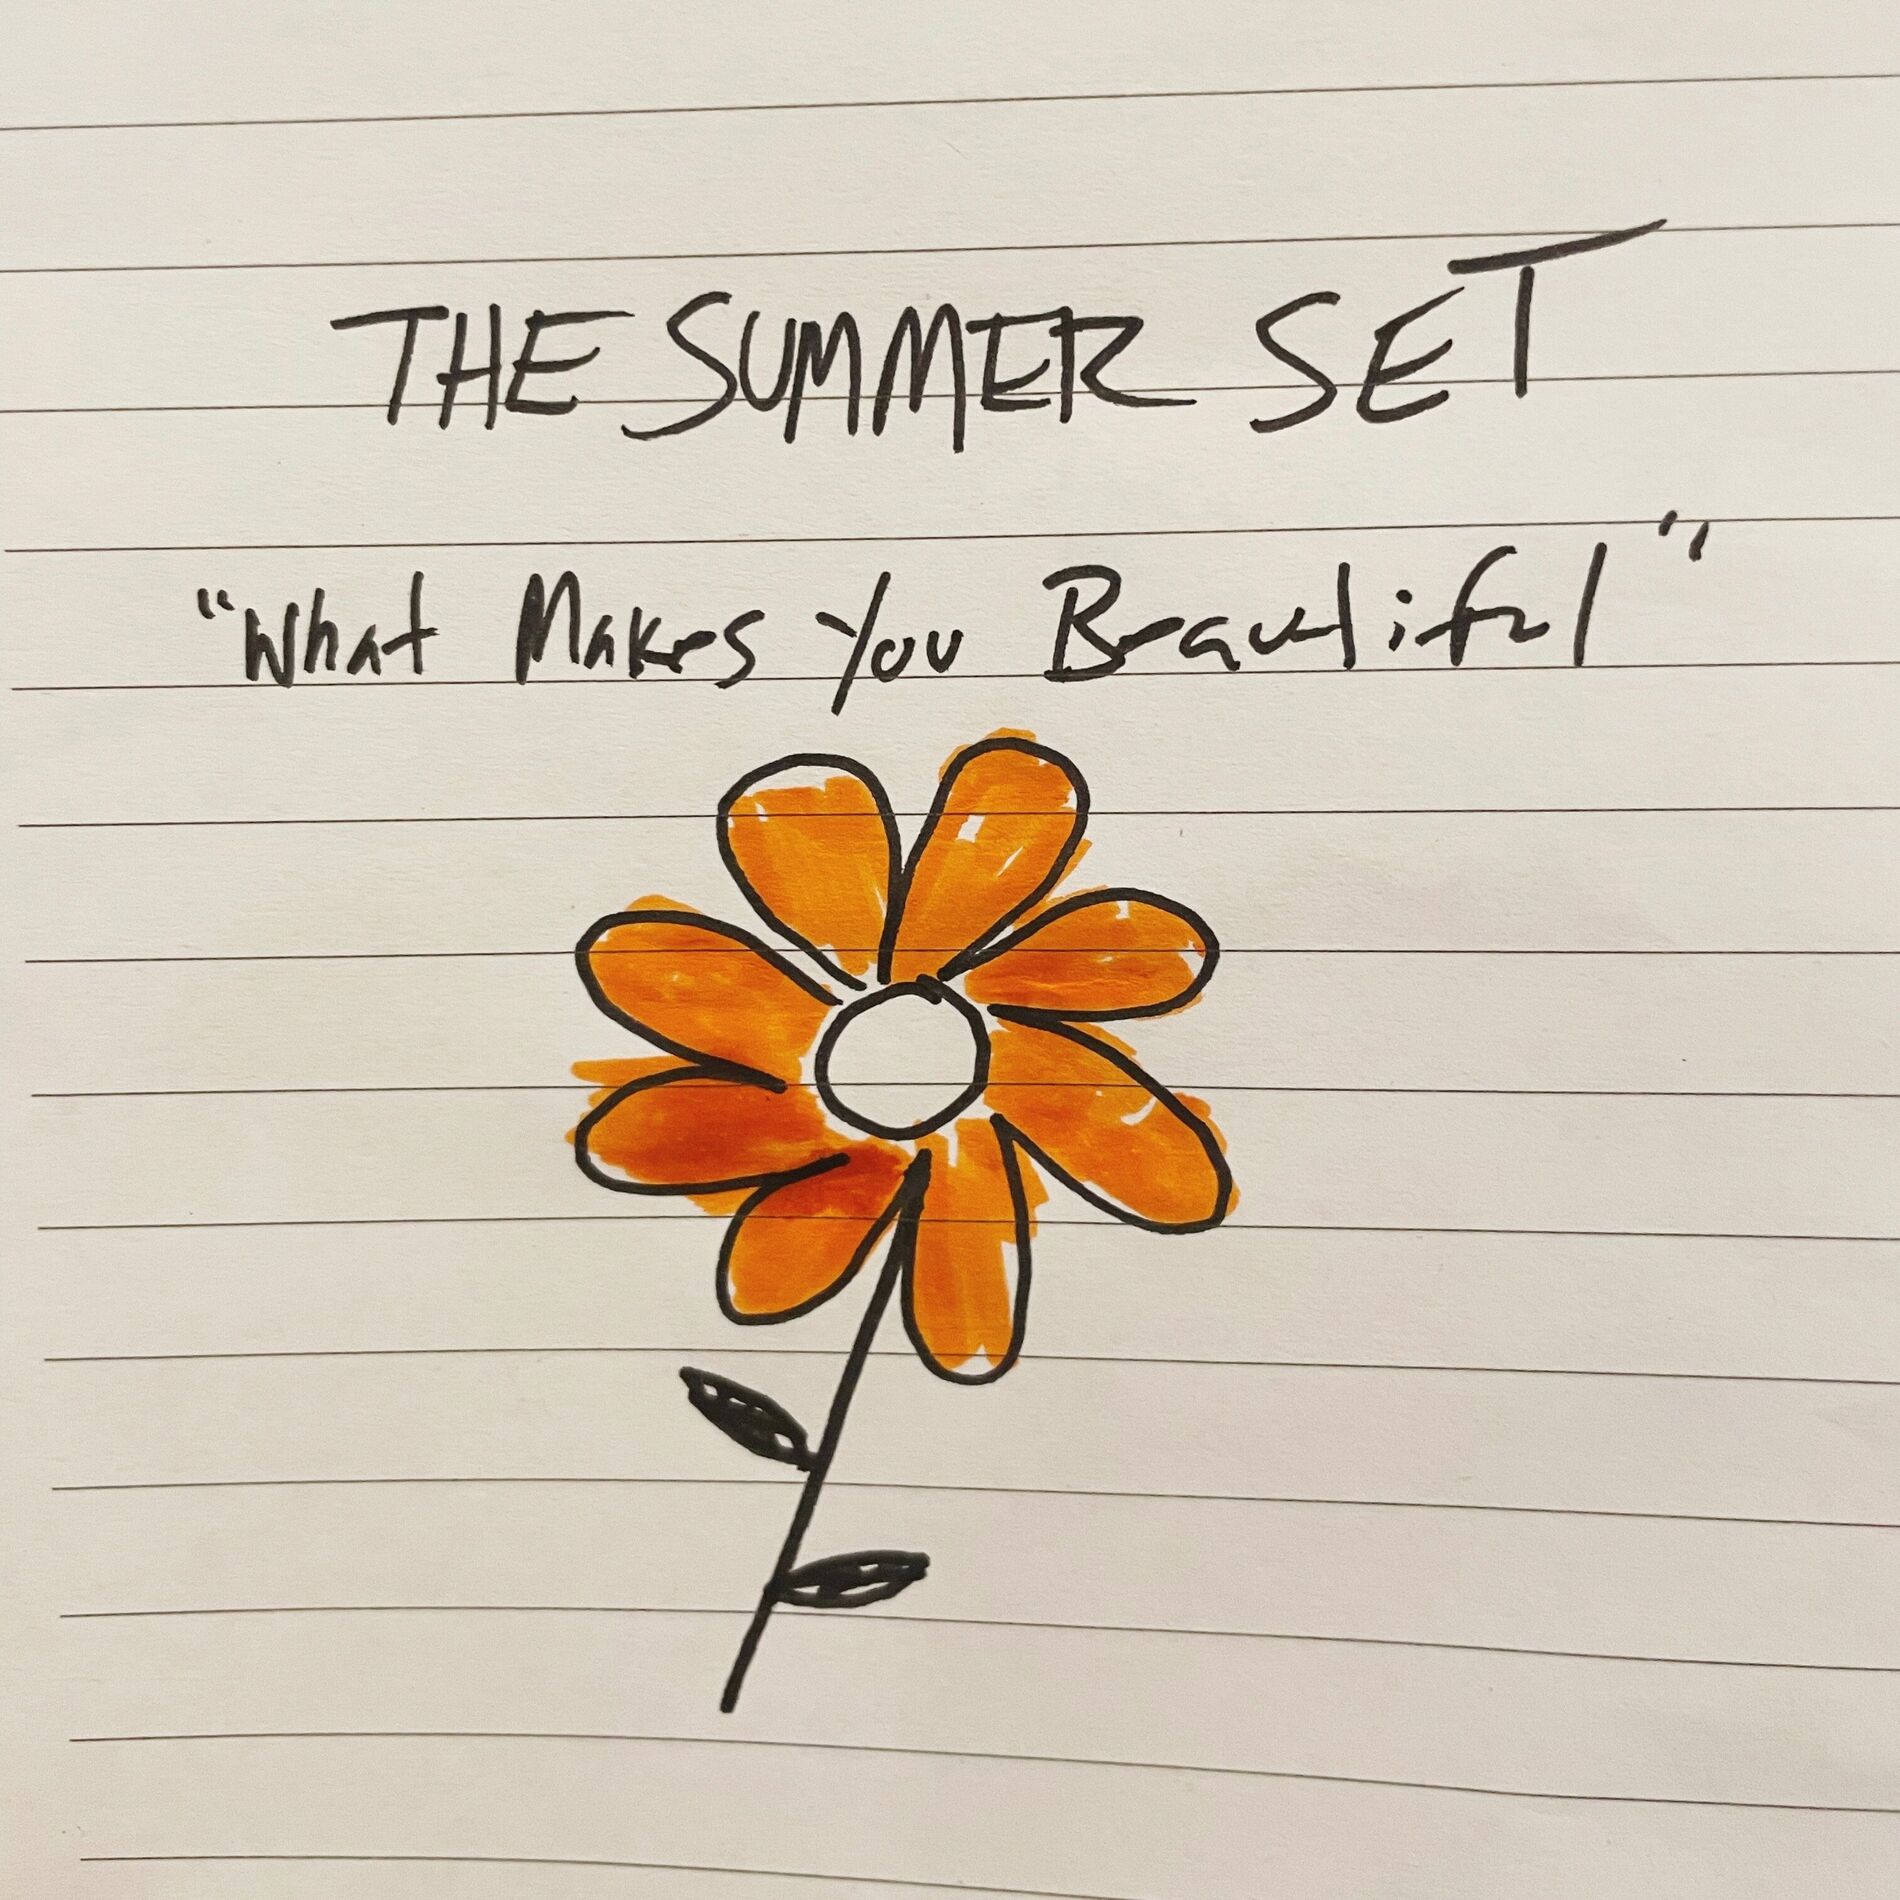 THE SUMMER SET
"What Makes You Beautiful"